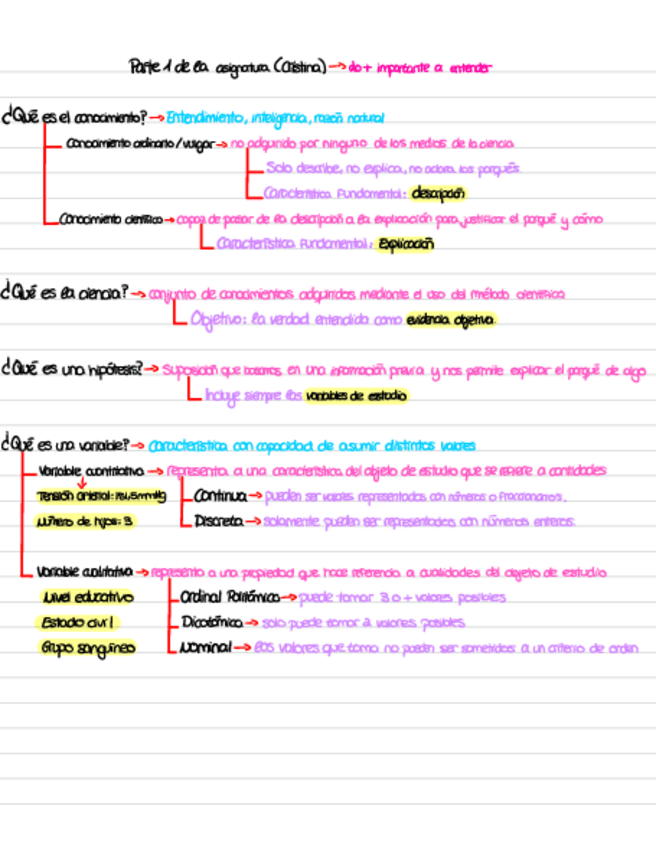 Parte 1 de la asignatura (Cristina) → do + importante a entender
¿Qué es el conocimiento? → Entendimiento, inteligencia, razón natural
Conocimiento ordinario/vulgar → no adquirido por ninguno de los medios de la ciencia
Solo describe, no explica, no aclara los porqués
Característica fundamental: descripción
Conocimiento científico → capaz de pasar de la descripción a la explicación para justificar el porqué y cómo
Característica fundamental: Explicación
¿Qué es la ciencia? → conjunto de conocimientos adquiridos mediante el uso del método científico
Objetivo: la verdad entendida como evidencia objetiva.
¿Qué es una hipótesis? → Suposición que basamos en una información previa y nos permite explicar el porqué de algo
Incluye siempre las variables de estudio
¿Qué es una variable? → Característica con capacidad de asumir distintos valores
Variable cuantitativa → representa a una característica del objeto de estudio que se refiere a cantidades
Tensión arterial: mmHg Continua → pueden ser valores representados con números o fraccionarios.
Número de hijos: 3 Discreta → solamente pueden ser representados con números enteros.
Variable cualitativa → representa a una propiedad que hace referencia a cualidades del objeto de estudio
Nivel educativo Ordinal Politómica → puede tomar 3 o + valores posibles
Estado civil Dicotómica → solo puede tomar 2 valores posibles
Grupo sanguíneo Nominal → los valores que toma no pueden ser sometidos a un criterio de orden